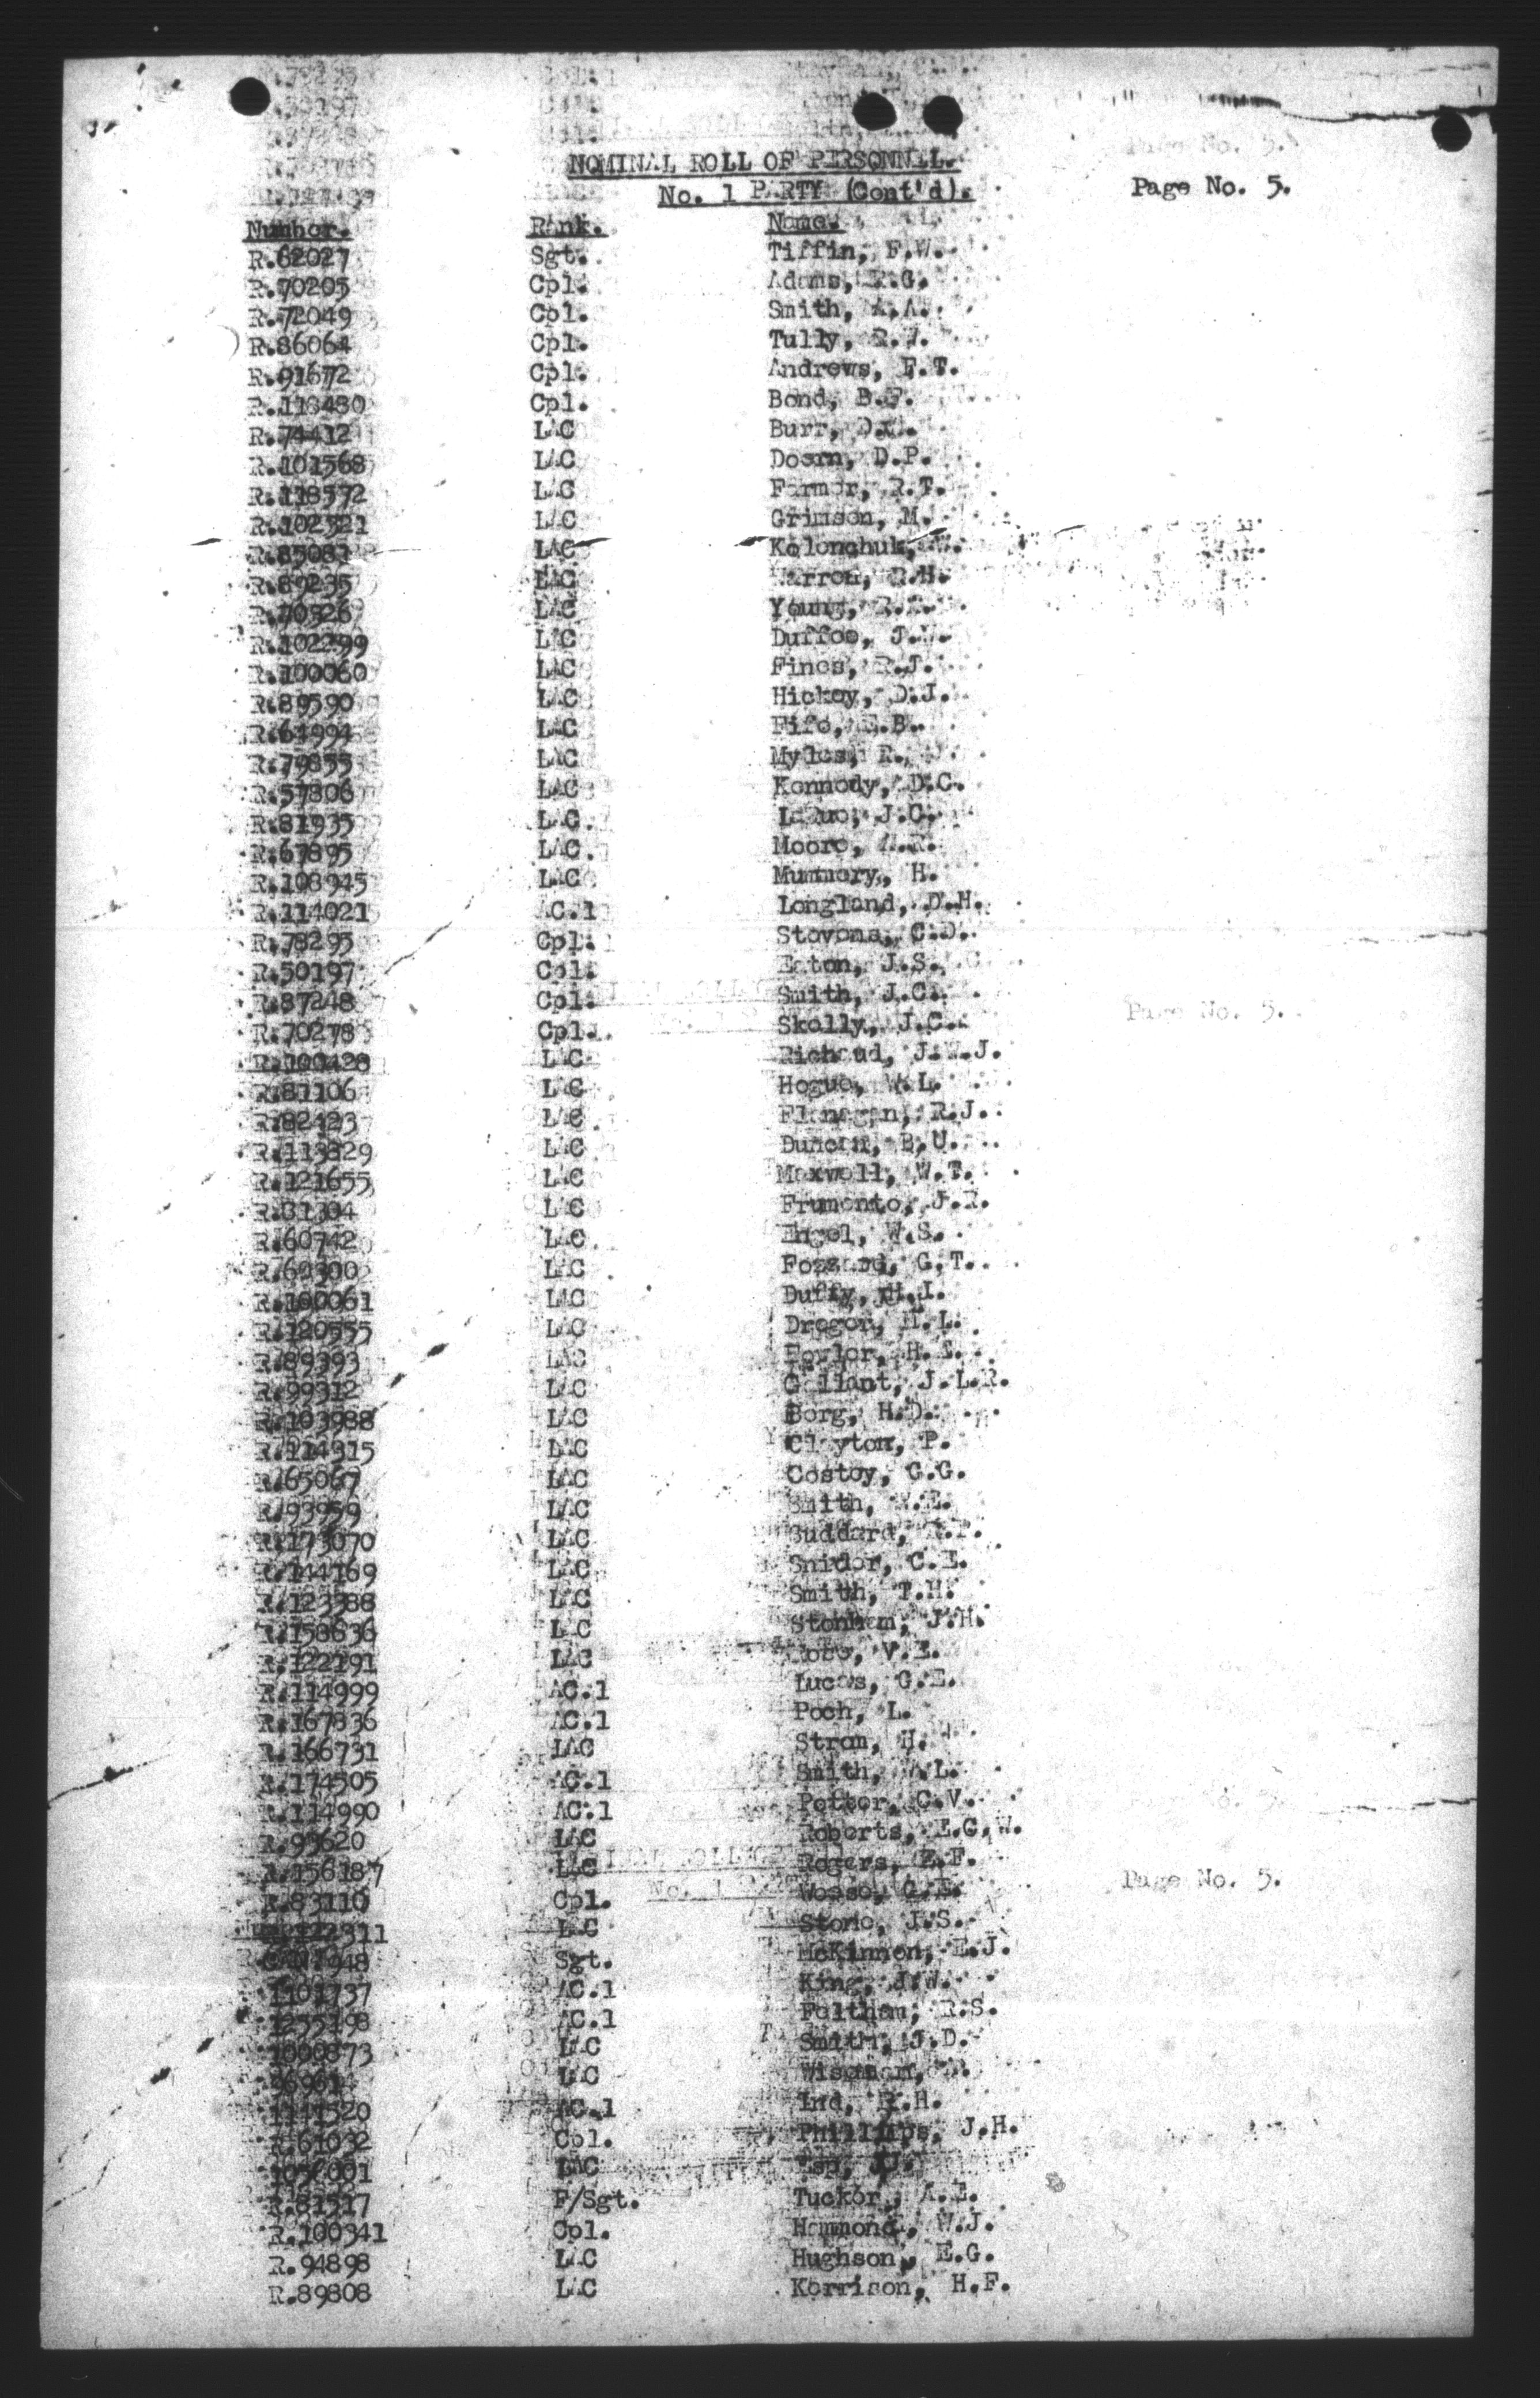 NOMINAL ROLL OF PERSONNEL.
No. 1 PARTY (Cont'd).
Page No. 5.
Number. Rank. Name.
R.62027 Sgt. Tiffin, F.W.
R.70205 Cpl. Adams, R.G.
R.72049 Cpl. Smith, A.A.
R.86064 Cpl. Tully, R.
R.91672 Cpl. Andrews, F.T.
R.118480 Cpl. Bond, B.F.
R.74412 LAC Burr,
R.101568 LAC Doern, D.P.
R.118572 LAC Farmer, R.T.
R.102321 LAC Grimson, M.
R.85081 LAC Kolonchuk,
R.89235 LAC Warren, R.H.
R.70326 LAC Young,
R.102299 LAC Duffee, J.W.
R.100060 LAC Fines, R.J.
R.89590 LAC Hickey, D.J.
R.64994 LAC Fife, E.B.
R.79855 LAC Myles, R.
R.57806 LAC Kennedy, D.C.
R.81935 LAC LaRue, J.C.
R.67895 LAC Moore, A.R.
R.108945 LAC Mummery, H.
R.114021 AC.1 Longland, D.H.
R.78295 Cpl. Stevens, C.D.
R.50197 Cpl. Eaton, J.S.
R.87248 Cpl. Smith, J.C.
R.70278 Cpl. Skelly, J.C.
Page No. 5.
R.100428 LAC Richaud, J.W.J.
R.81106 LAC Hogue, W.L.
R.82423 LAC Flanagan, R.J.
R.113829 LAC Duncan, B.U.
R.121655 LAC Maxwell, W.T.
R.81304 LAC Frumento, J.R.
R.60742 LAC Engel, W.S.
R.62300 LAC Fozzard, G.T.
R.100061 LAC Duffy, H.J.
R.120555 LAC Dreger, H.L.
R.89393 LAC Foyler, H.E.
R.99312 LAC Gallant, J.L.R.
R.103988 LAC Borg, H.D.
R.114315 LAC Clayton, P.
R.65067 LAC Costey, C.G.
R.93959 LAC Smith, W.E.
R.173070 LAC Suddard,
R.144169 LAC Snider, C.E.
R.123588 LAC Smith, T.H.
R.150636 LAC Stonham, J.H.
R.122191 LAC V.E.
R.114999 AC.1 Lucas, G.E.
R.167836 AC.1 Poch, L.
R.166731 LAC Strom, H.
R.174505 AC.1 Smith, A.L.
R.114990 AC.1 Potter, C.V.
R.95620 LAC Roberts, E.G.W.
R.156187 LAC Rogers, E.F.
Page No. 5.
R.83110 Cpl.
LAC Stone, J.S.
Sgt. McKinnon, E.J.
1101737 AC.1 King, J.W.
1255198 AC.1 Feltham, R.S.
1000873 LAC Smith, J.D.
LAC Wiseman,
1111520 AC.1 Ind, R.H.
R.61032 Cpl. Phillips, J.H.
LAC
R.81517 F/Sgt. Tucker, A.E.
R.100341 Cpl. Hammond, W.J.
R.94898 LAC Hughson, E.G.
R.89808 LAC Kerrison, H.F.